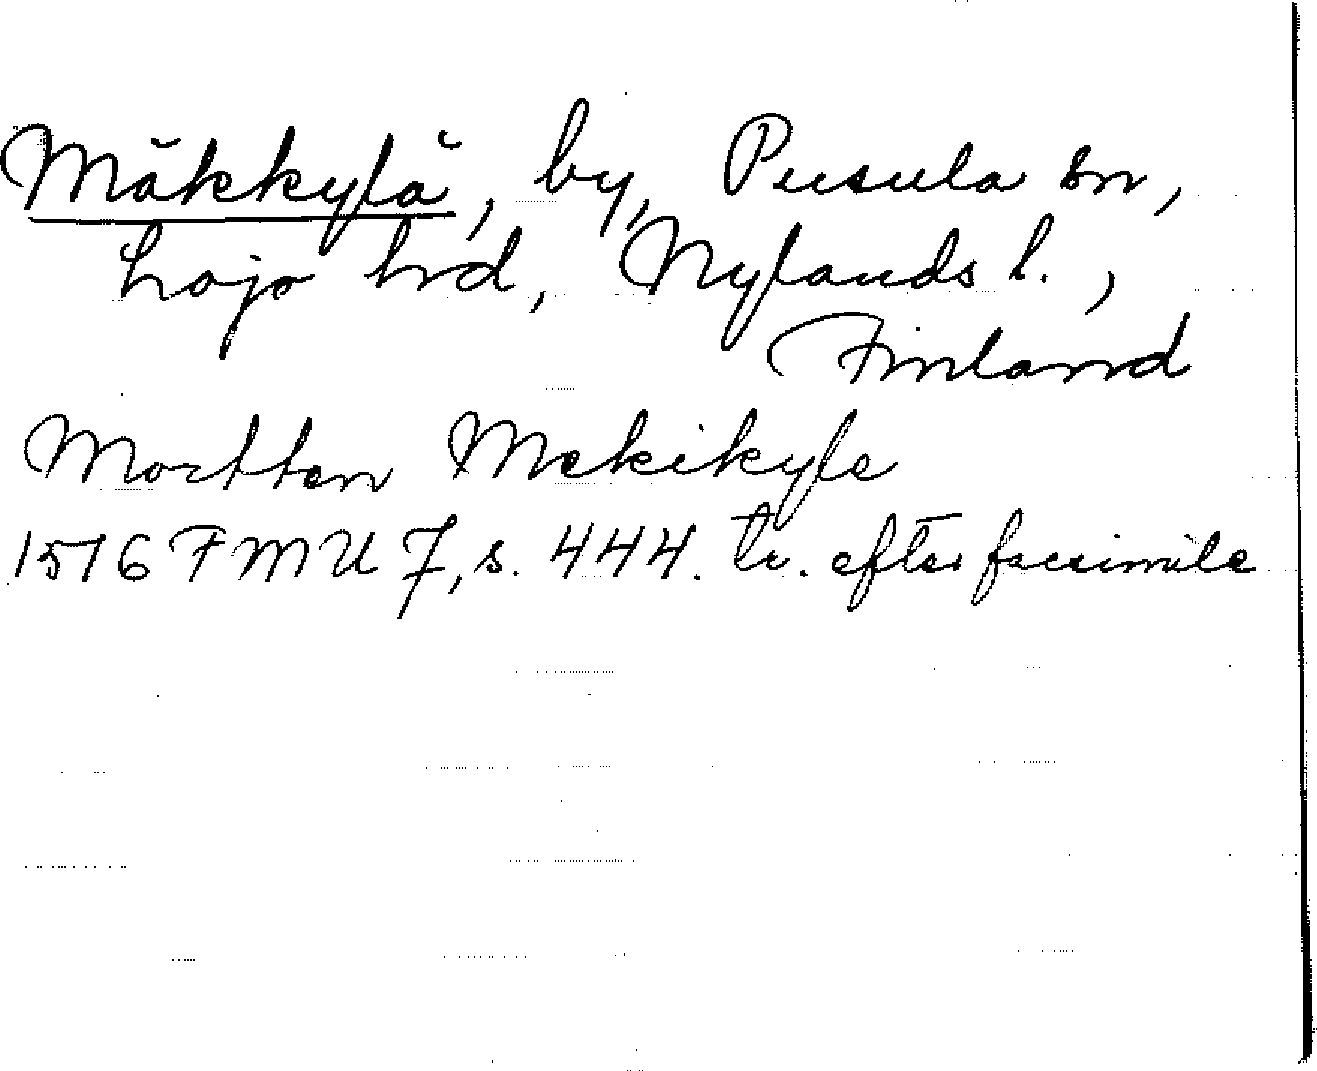 Mäkkylä, by, Pusula sn,
Lojo hrd, Nylands l.,
Finland
Mortten Mekikyle
1516 FMU 7, s. 444. tr. efter facsimile